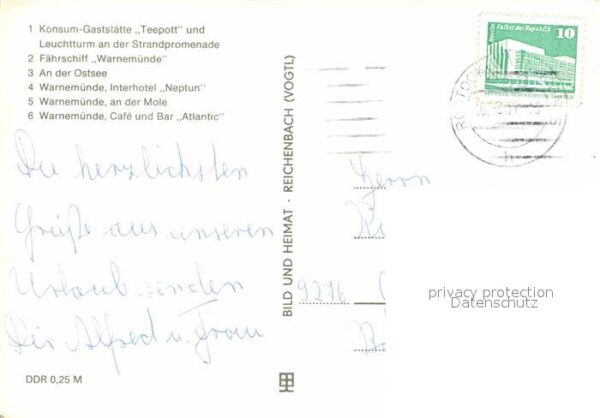 1 Konsum-Gaststätte „Teepott" und
Leuchtturm an der Strandpromenade
2 Fährschiff „Warnemünde"
3 An der Ostsee
4 Warnemünde, Interhotel „Neptun"
5 Warnemünde, an der Mole
6 Warnemünde, Café und Bar „Atlantic"
Die herzlichsten
Grüße aus unseren
Urlaub senden
Dir Alfred u. Frau
DDR 0,25 M
BILD UND HEIMAT · REICHENBACH (VOGTL)
Berlin Palast der Republik
10
Herrn
9276
privacy protection
Datenschutz